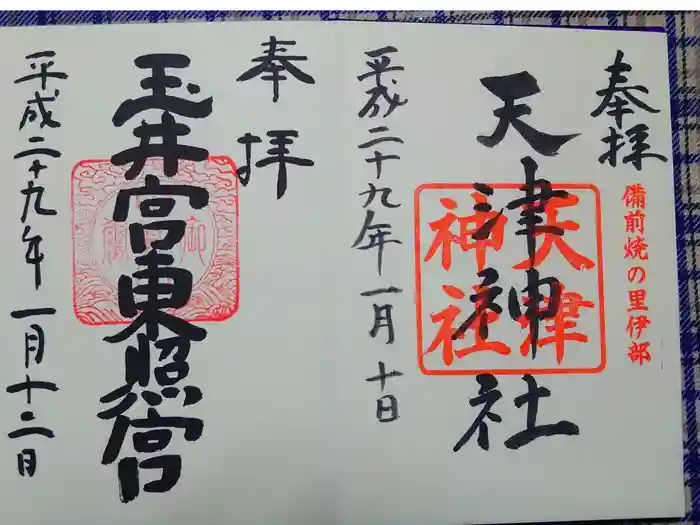 奉拝
備前焼の里伊部
天津神社
天津
神社
平成二十九年一月十日
奉拝
玉井宮東照宮
平成二十九年一月十二日